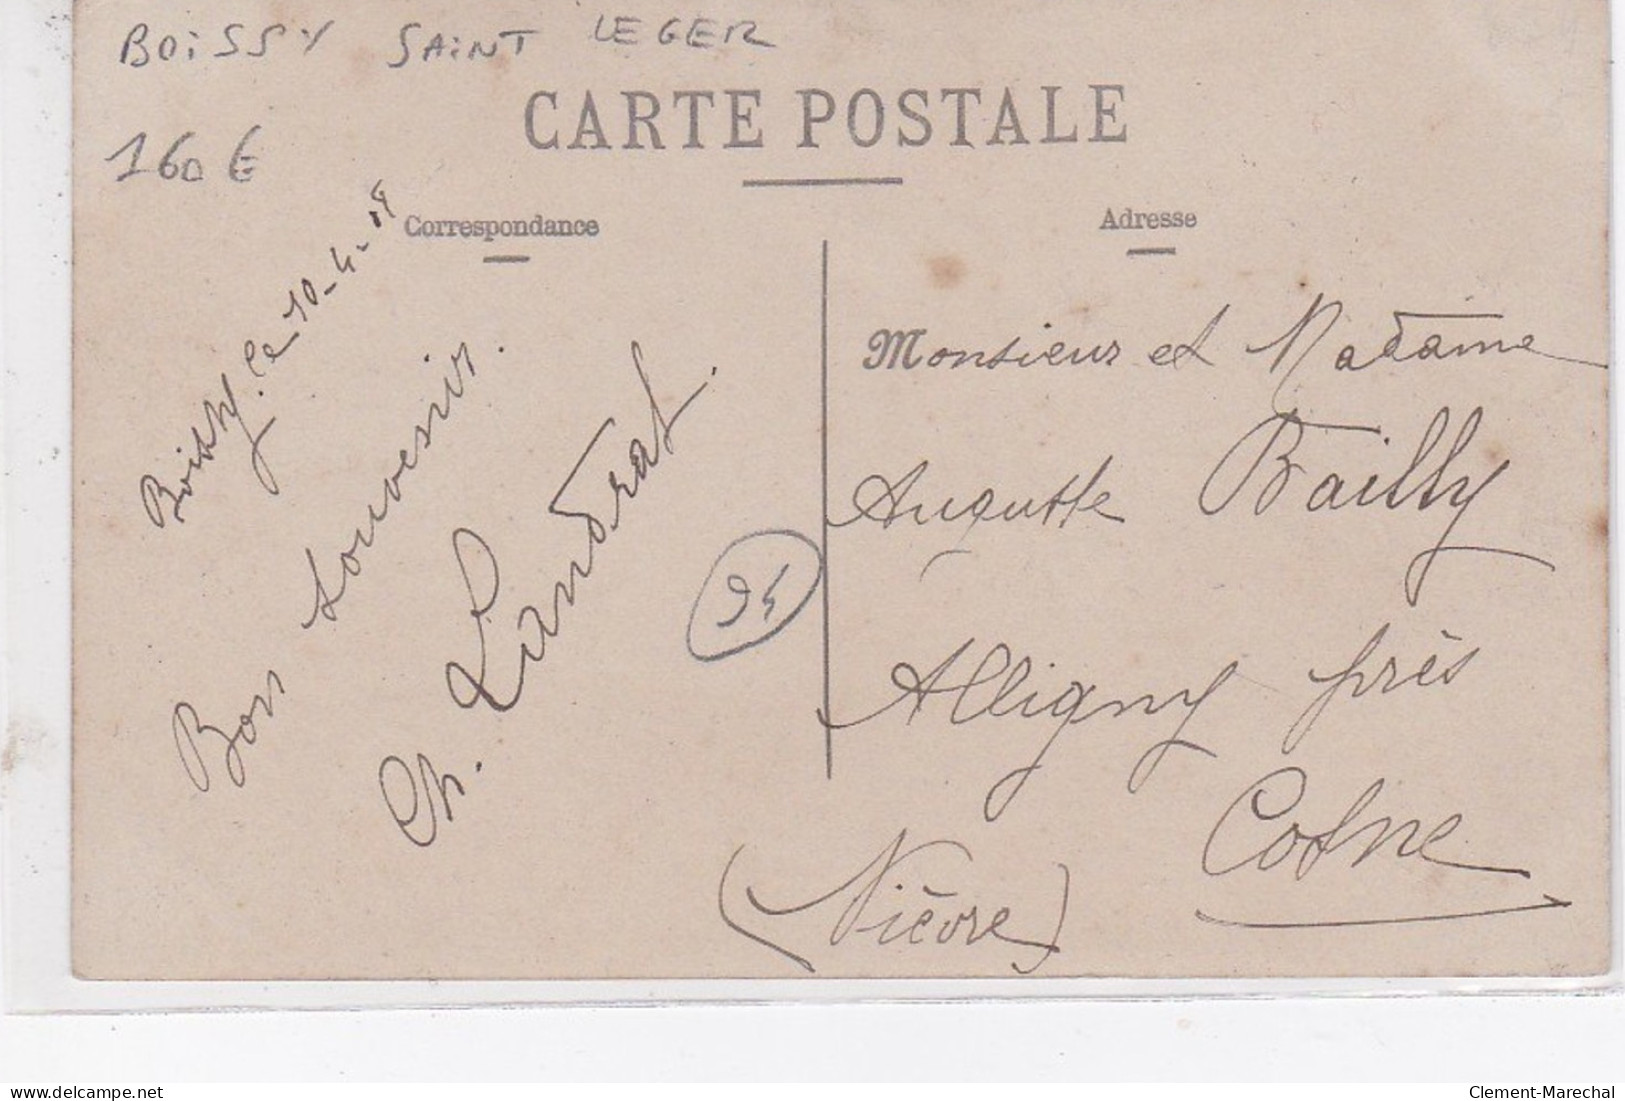 BOISSY SAINT LEGER
160 €
CARTE POSTALE
Correspondance
Adresse
Boissy. le 10-4-
Bon souvenir.
Ch. Landrat.
94
Monsieur et Madame
Auguste Bailly
Alligny près
Cosne
(Nièvre)
delcampe.net
Clement-Marechal